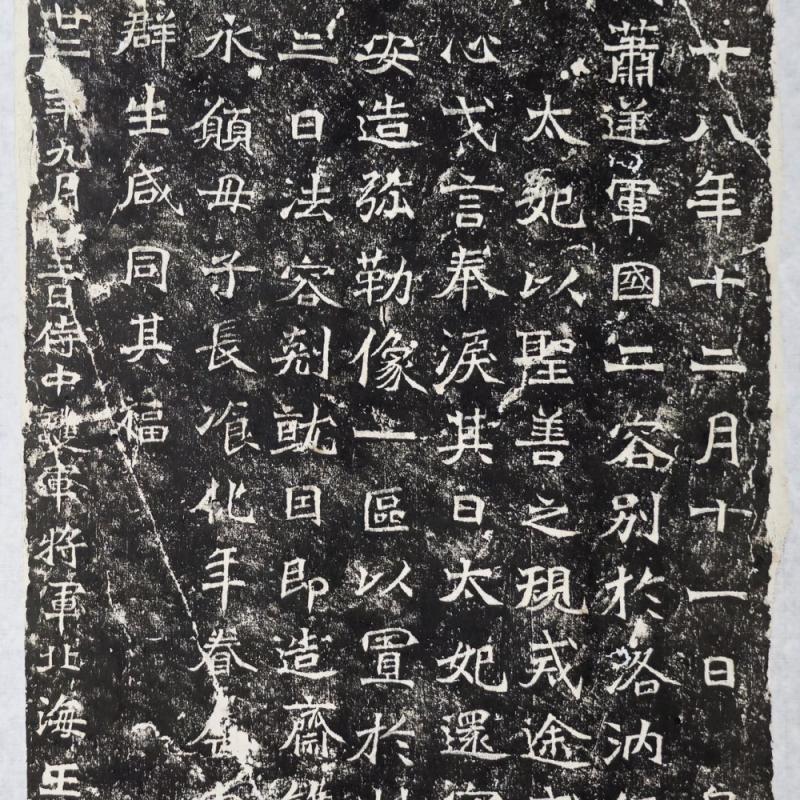 十八年十二月十一日
蕭逆軍國二容別於洛汭
太妃以聖善之規戒途
心戈言奉淚其日太妃還
安造弥勒像一區以置於
三日法容剋就因即造齋
永願母子長飡化年眷
群生咸同其福
廿二年九月廿三日侍中護軍將軍北海王